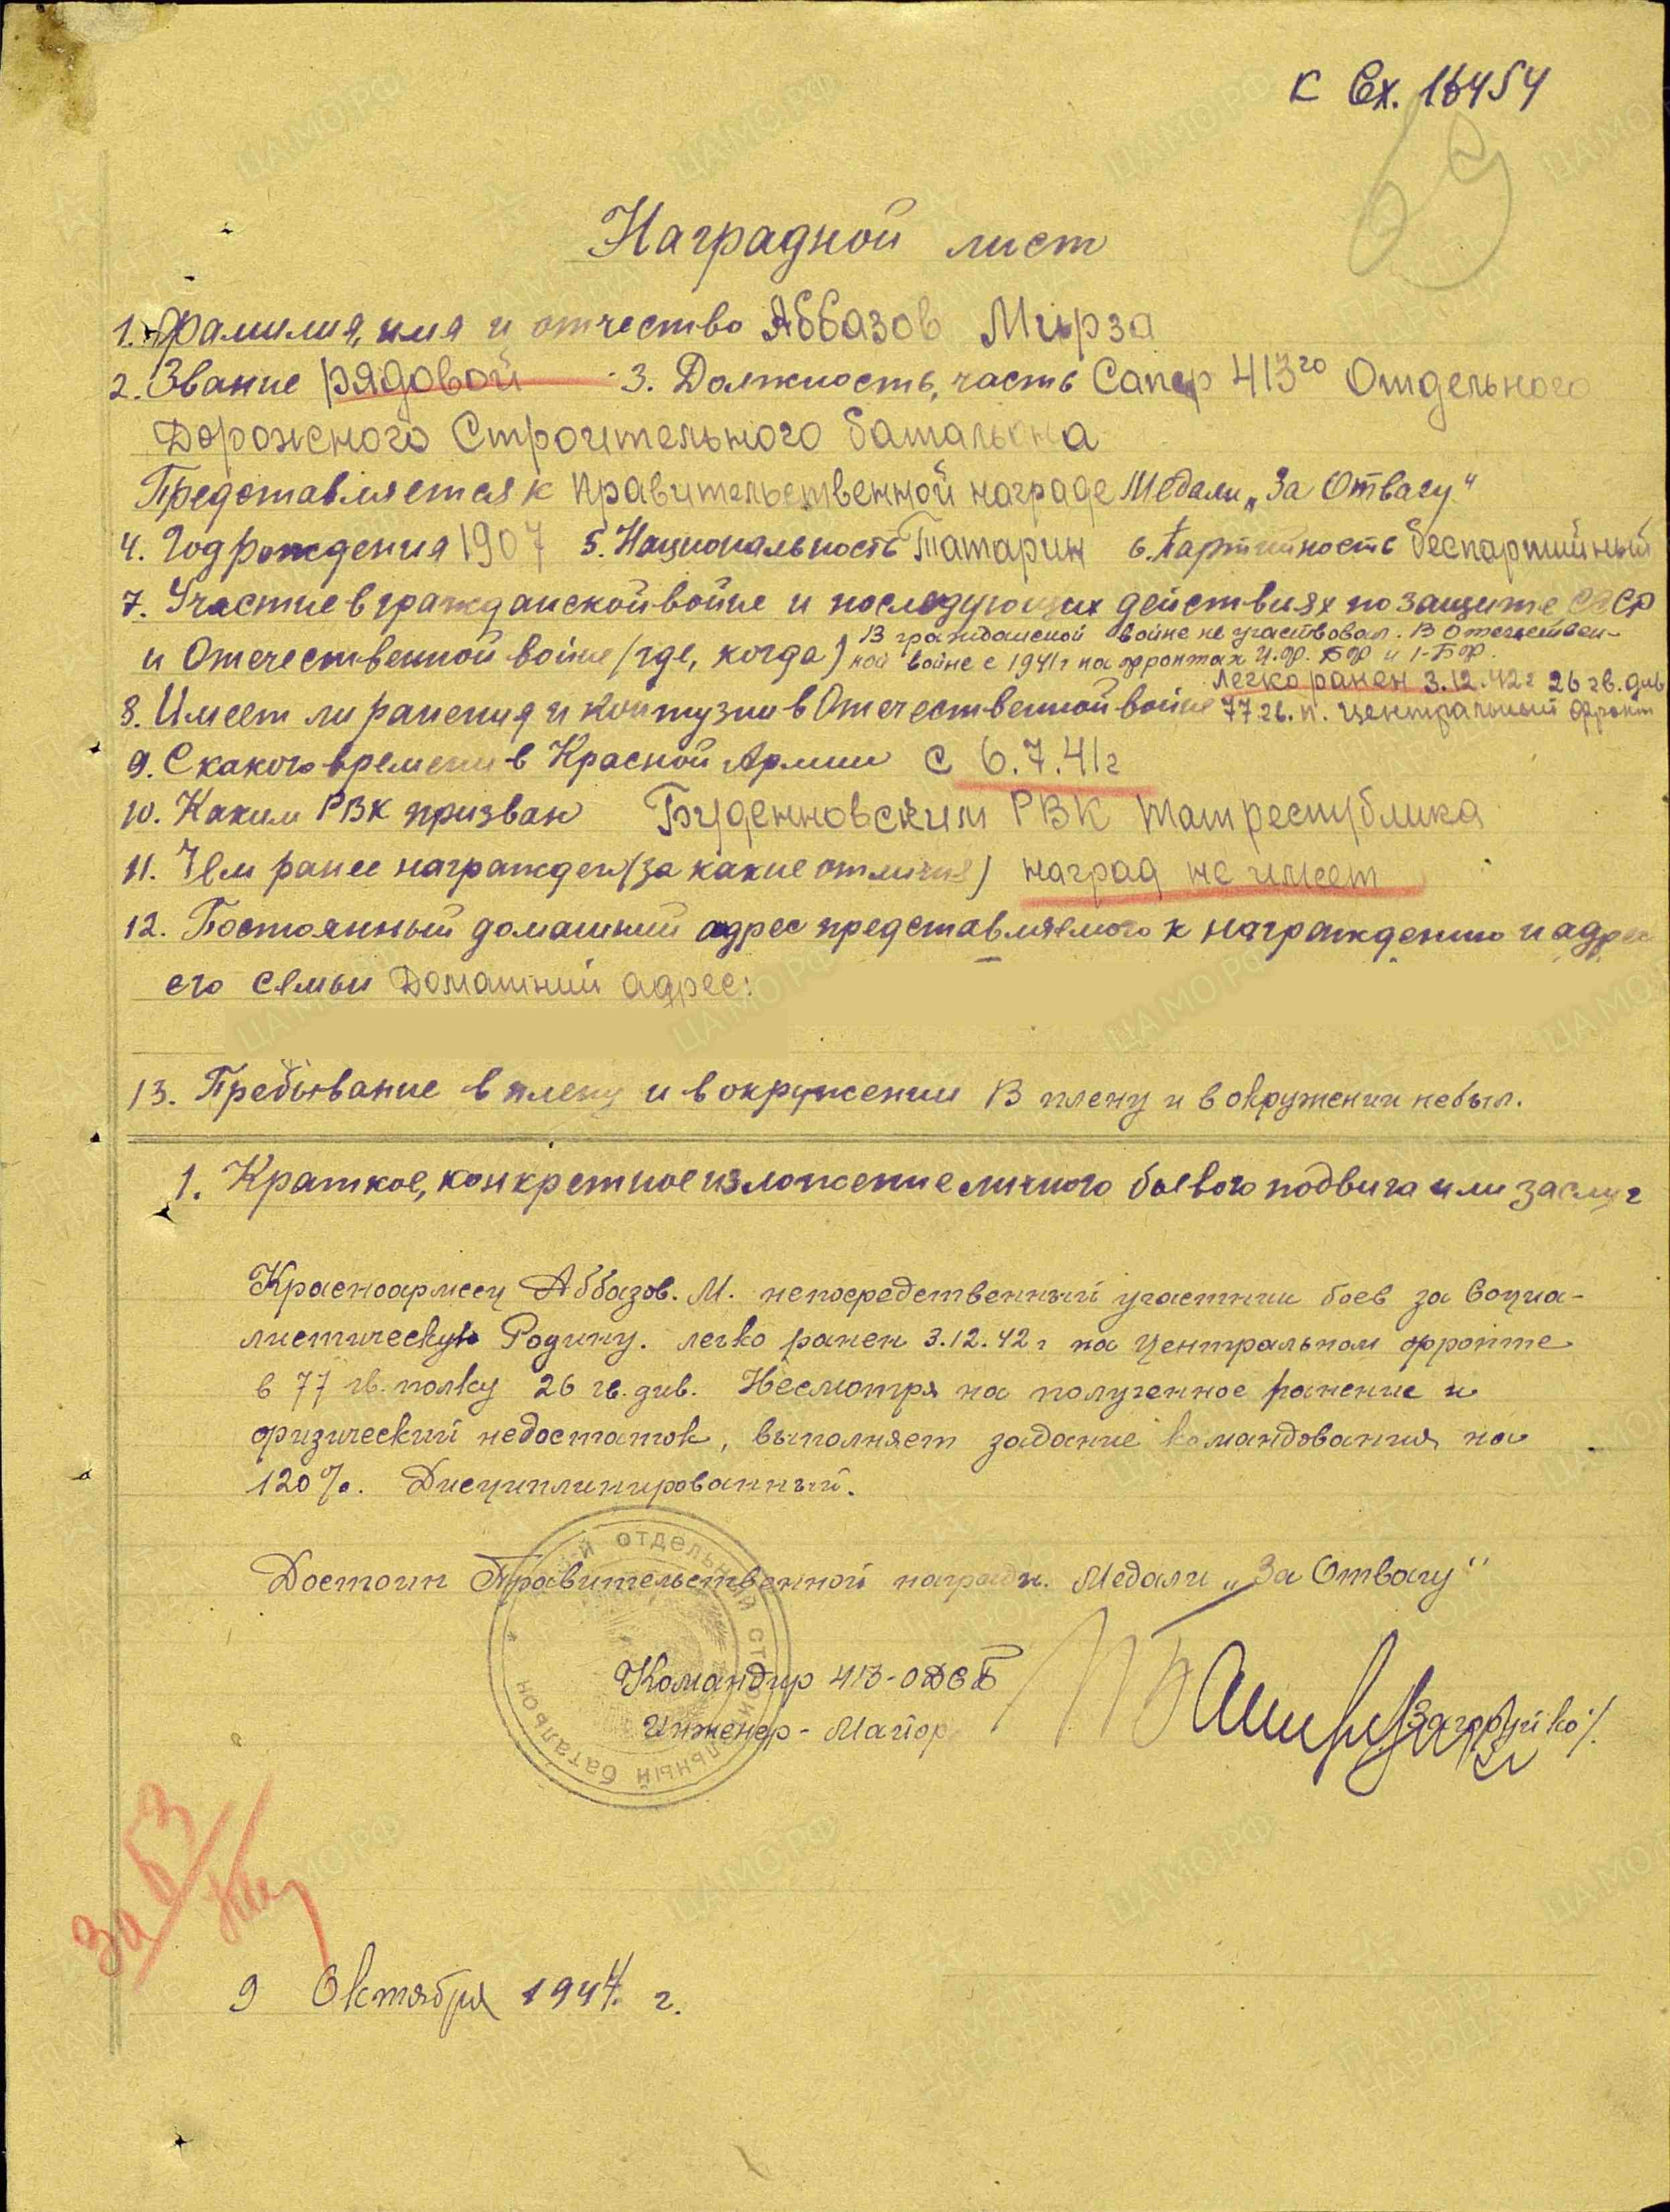 к Вх. 16454
69
Наградной лист
1. Фамилия, имя и отчество Аббазов Мирза
2. Звание рядовой 3. Должность, часть Сапер 413го Отдельного
Дорожного Строительного батальона
Представляется к правительственной награде Медали „За Отвагу"
4. Год рождения 1907 5. Национальность Татарин 6. Партийность беспартийный
7. Участие в гражданской войне и последующих действиях по защите СССР
и Отечественной войне (где, когда) В гражданской войне не участвовал. В Отечествен-
ной войне с 1941г на фронтах Ц.Ф. БФ и 1-БФ.
легко ранен 3.12.42г 26 гв. див
8. Имеет ли ранения и контузии в Отечественной войне 77 гв. п. Центральный фронт
9. С какого времени в Красной Армии с 6.7.41г
10. Каким РВК призван Буденновским РВК Татреспублика
11. Чем ранее награжден (за какие отличия) наград не имеет
12. Постоянный домашний адрес представляемого к награждению и адрес
его семьи Домашний адрес:
13. Пребывание в плену и в окружении В плену и в окружении небыл.
1. Краткое, конкретное изложение личного боевого подвига или заслуг
Красноармеец Аббазов. М. непосредственный участник боев за Социа-
листическую Родину. легко ранен 3.12.42г на Центральном фронте
в 77 гв. полку 26 гв. див. Несмотря на полученное ранение и
физический недостаток, выполняет задание командования на
120%. Дисциплинированный.
Достоин Правительственной награды. Медали „За Отвагу"
Командир 413-ОДСБ
Инженер-Майор /Загоруйко/.
отдельный строительный батальон
За БЗ
9 Октября 1944. г.